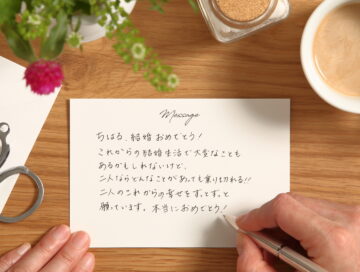 Message
ちはる、結婚おめでとう！
これからの結婚生活で大変なことも
あるかもしれないけど、
二人ならどんなことがあっても乗り切れる!!
二人のこれからの幸せをずっとずっと
願っています。本当におめでとう！